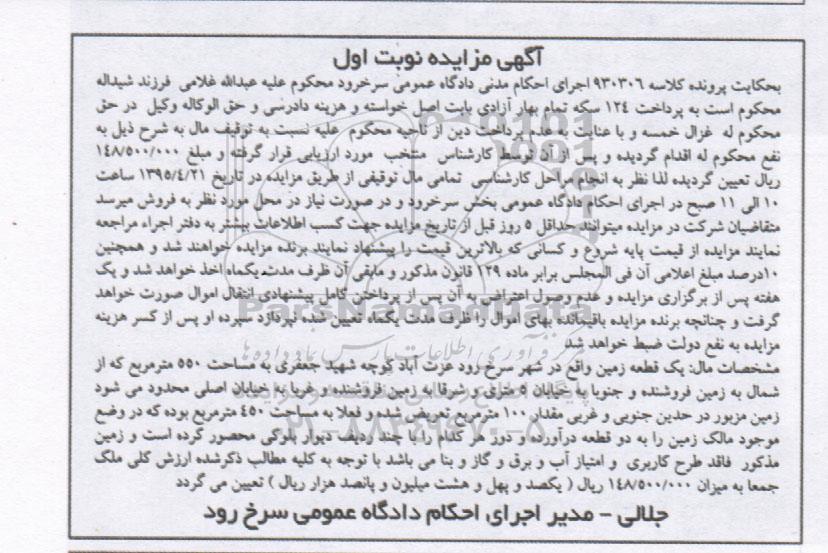 آگهی مزایده نوبت اول
بحکایت پرونده کلاسه ۹۳۰۳۰۶ اجرای احکام مدنی دادگاه عمومی سرخرود محکوم علیه عبدالله غلامی فرزند شیداله
محکوم است به پرداخت ۱۲۴ سکه تمام بهار آزادی بابت اصل خواسته و هزینه دادرسی و حق الوکاله وکیل در حق
محکوم له غزال خمسه و با عنایت به عدم پرداخت دین از ناحیه محکوم علیه نسبت به توقیف مال به شرح ذیل به
نفع محکوم له اقدام گردیده و پس از آن توسط کارشناس منتخب مورد ارزیابی قرار گرفته و مبلغ ۱۴۸/۵۰۰/۰۰۰
ریال تعیین گردیده لذا نظر به انجام مراحل کارشناسی تمامی مال توقیفی از طریق مزایده در تاریخ ۱۳۹۵/۴/۲۱ ساعت
۱۰ الی ۱۱ صبح در اجرای احکام دادگاه عمومی بخش سرخرود و در صورت نیاز در محل مورد نظر به فروش میرسد
متقاضیان شرکت در مزایده میتوانند حداقل ۵ روز قبل از تاریخ مزایده جهت کسب اطلاعات بیشتر به دفتر اجراء مراجعه
نمایند مزایده از قیمت پایه شروع و کسانی که بالاترین قیمت را پیشنهاد نمایند برنده مزایده خواهند شد و همچنین
۱۰درصد مبلغ اعلامی آن فی المجلس برابر ماده ۱۲۹ قانون مذکور و مابقی آن ظرف مدت یکماه اخذ خواهد شد و یک
هفته پس از برگزاری مزایده و عدم وصول اعتراض به آن پس از پرداختن کامل پیشنهادی انتقال اموال صورت خواهد
گرفت و چنانچه برنده مزایده باقیمانده بهای اموال را ظرف مدت یکماه تعیین شده نپردازد سپرده او پس از کسر هزینه
مزایده به نفع دولت ضبط خواهد شد
مشخصات مال: یک قطعه زمین واقع در شهر سرخ رود عزت آباد کوچه شهید جعفری به مساحت ۵۵۰ مترمربع که از
شمال به زمین فروشنده و جنوبا به خیابان ۵ متری و شرقا به زمین فروشنده و غربا به خیابان اصلی محدود می شود
زمین مزبور در حدین جنوبی و غربی مقدار ۱۰۰ مترمربع تعریض شده و فعلا به مساحت ۴۵۰ مترمربع بوده که در وضع
موجود مالک زمین را به دو قطعه درآورده و دور هر کدام را با چند ردیف دیوار بلوکی محصور کرده است و زمین
مذکور فاقد طرح کاربری و امتیاز آب و برق و گاز و بنا می باشد با توجه به کلیه مطالب ذکرشده ارزش کلی ملک
جمعا به میزان ۱۴۸/۵۰۰/۰۰۰ ریال ( یکصد و پهل و هشت میلیون و پانصد هزار ریال ) تعیین می گردد
جلالی - مدیر اجرای احکام دادگاه عمومی سرخ رود
ParsNamadData
۰۲۱-۸۸۳۴۹۶۷۰-۵